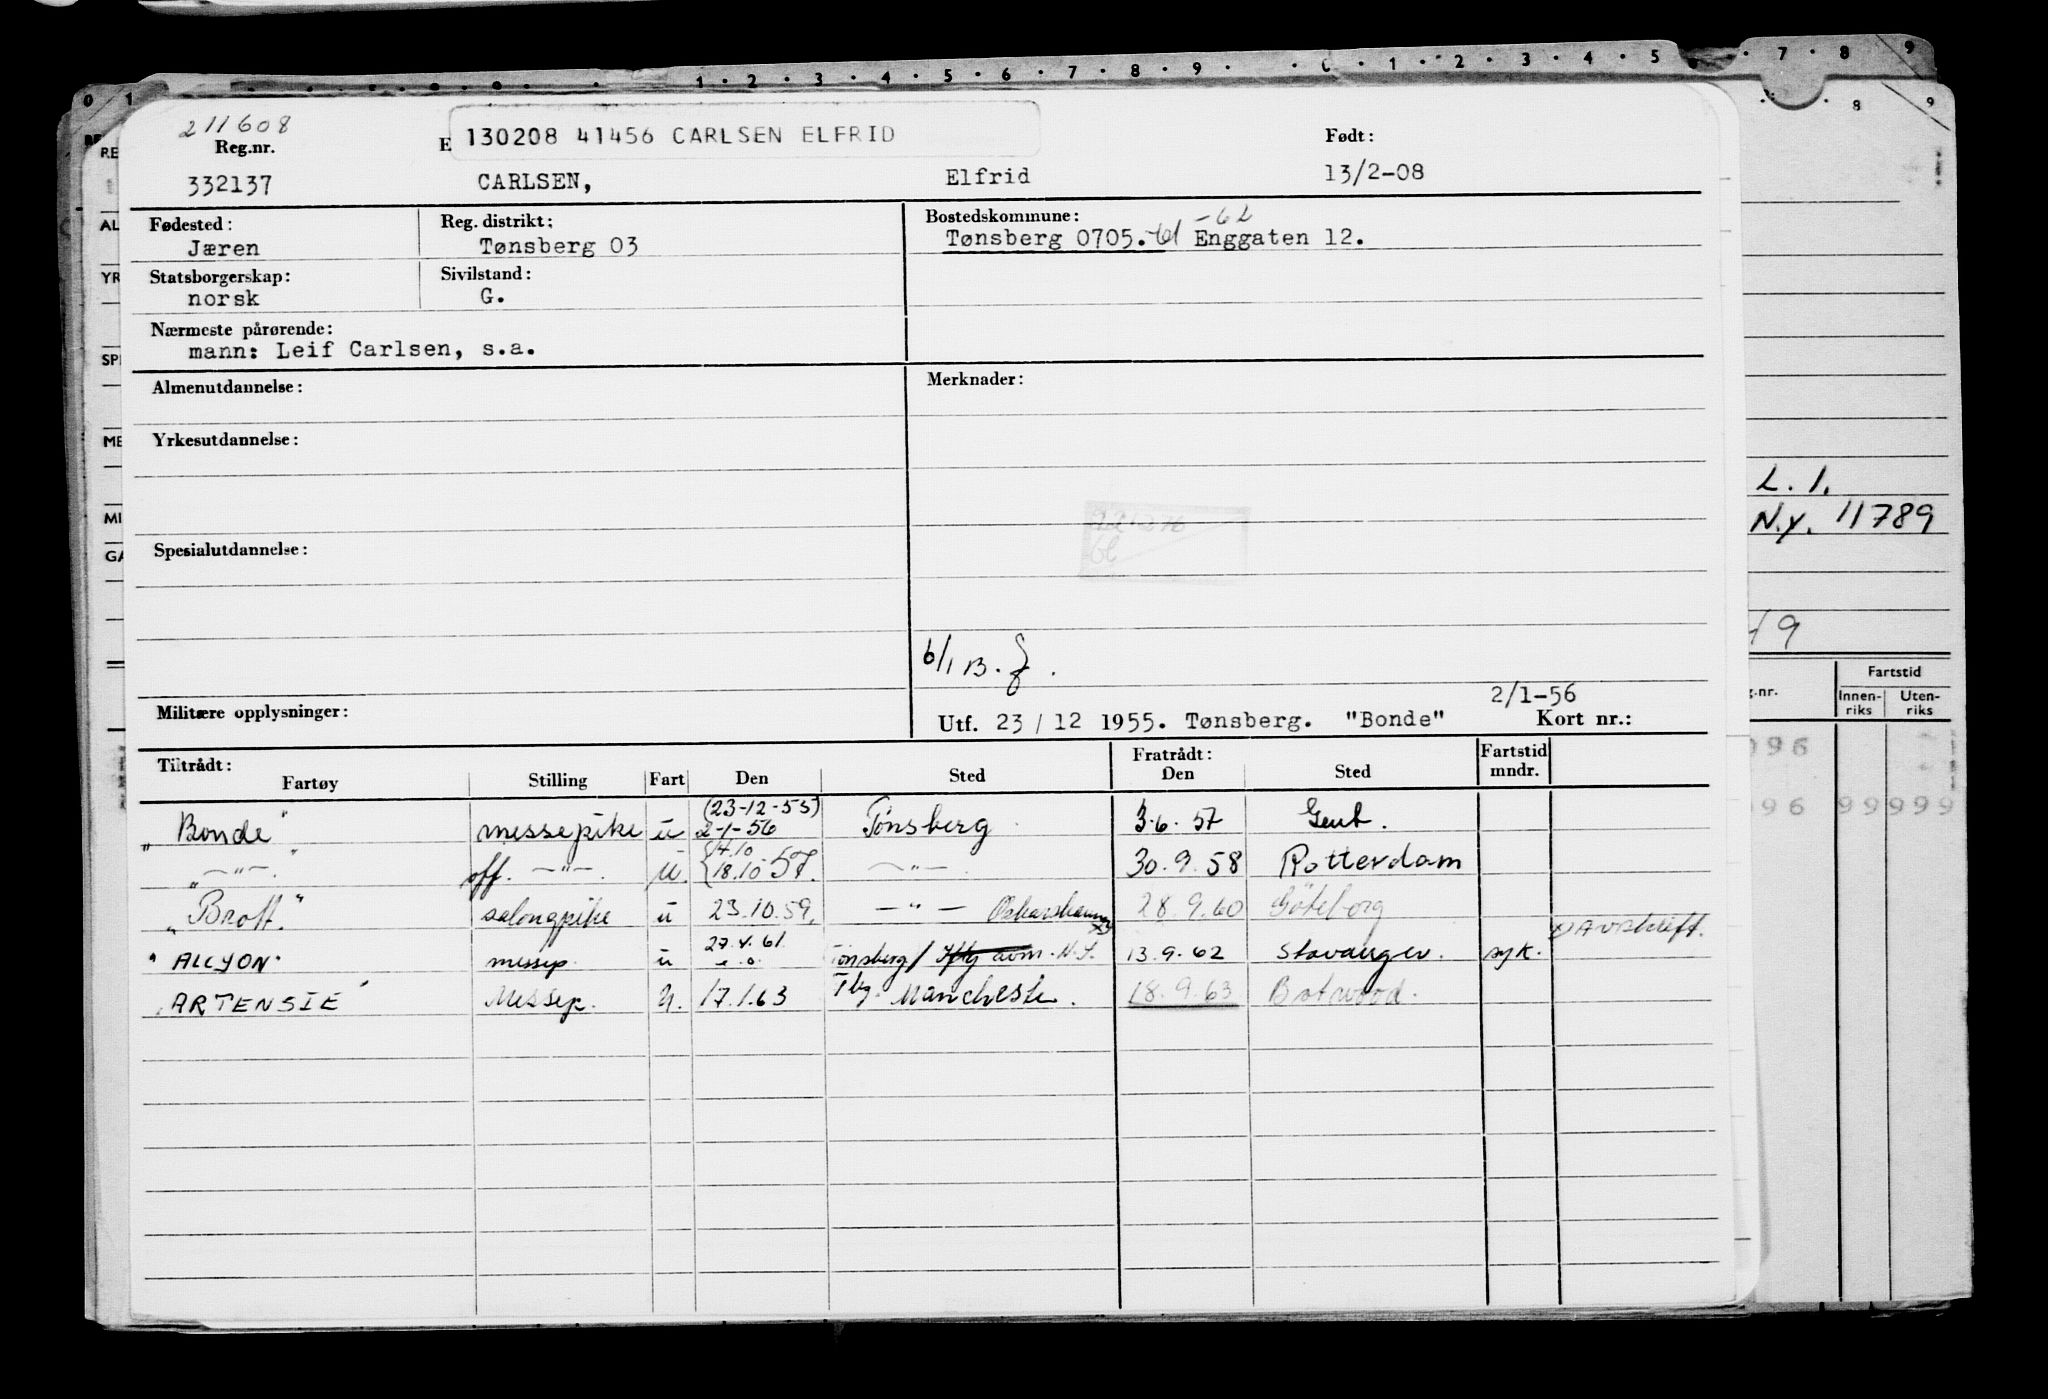 211608
Reg.nr. E 130208 41456 CARLSEN ELFRID Født:
332137 CARLSEN, Elfrid 13/2-08
Fødested: Reg. distrikt: Bostedskommune: -62
Jæren Tønsberg 03 Tønsberg 0705.-61 Enggaten 12.
Statsborgerskap: Sivilstand:
norsk G.
Nærmeste pårørende:
mann: Leif Carlsen, s.a.
Almenutdannelse: Merknader:
Yrkesutdannelse:
Spesialutdannelse:
6/1 B.
Militære opplysninger: 2/1-56
Utf. 23/12 1955. Tønsberg. "Bonde" Kort nr.:
Tiltrådt: Fratrådt: Fartstid
Fartøy Stilling Fart Den Sted Den Sted mndr.
(23-12-55)
"Bonde" messepike u 2-1-56 Tønsberg 3.6.57 Gent.
"—"—" off. —"—. u. 18.10.57. —"— 30.9.58 Rotterdam
"Brott." salongpike u 23.10.59. —"— Oskarshamn 28.9.60 Göteborg
x) Avskrift.
"ALCYON" messep. u 27.4.61 Tønsberg/ 13.9.62 Stavanger. syk.
"ARTENSIE" Messep. u. 17.1.63 Tbg. Manchester. 18.9.63 Botwood.
L. I.
N.y. 11789
49
Fartstid
Innen-riks Uten-riks
096
096 99999